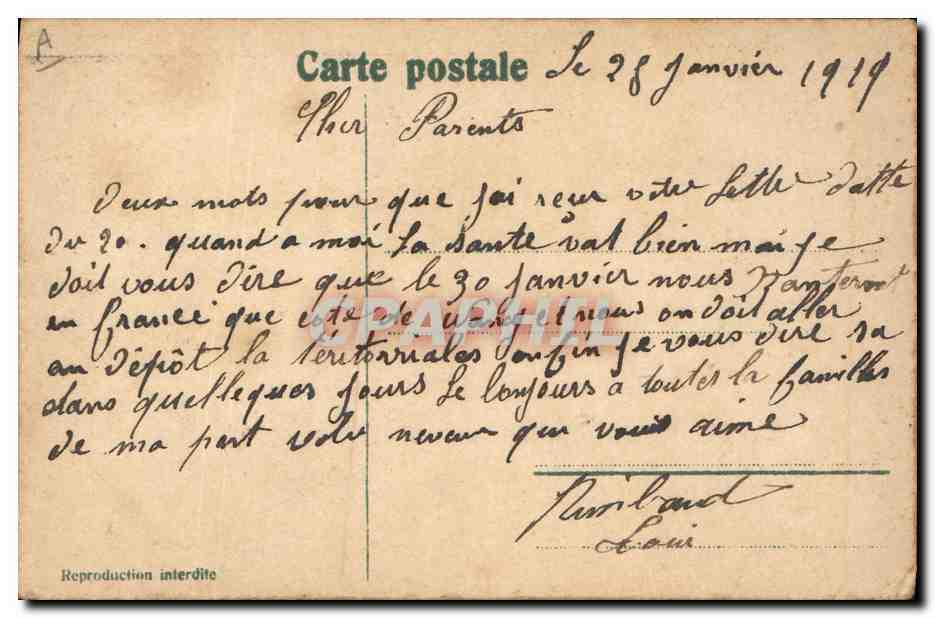 A
Carte postale Le 25 Janvier 1919
Cher Parents
deux mots pour que jai reçu votre lettre datte
du 20. quand a moi la santé vat bien mai je
doit vous dire que le 30 janvier nous
en france que coté de et nous on doit aller
au dépôt la teritorriales enfin je vous dire sa
dans quelleques jours Le bonjours a toutes la familles
de ma part votre neveux qui vous aime
Rimbaud
Louis
Reproduction interdite
CPAPHIL